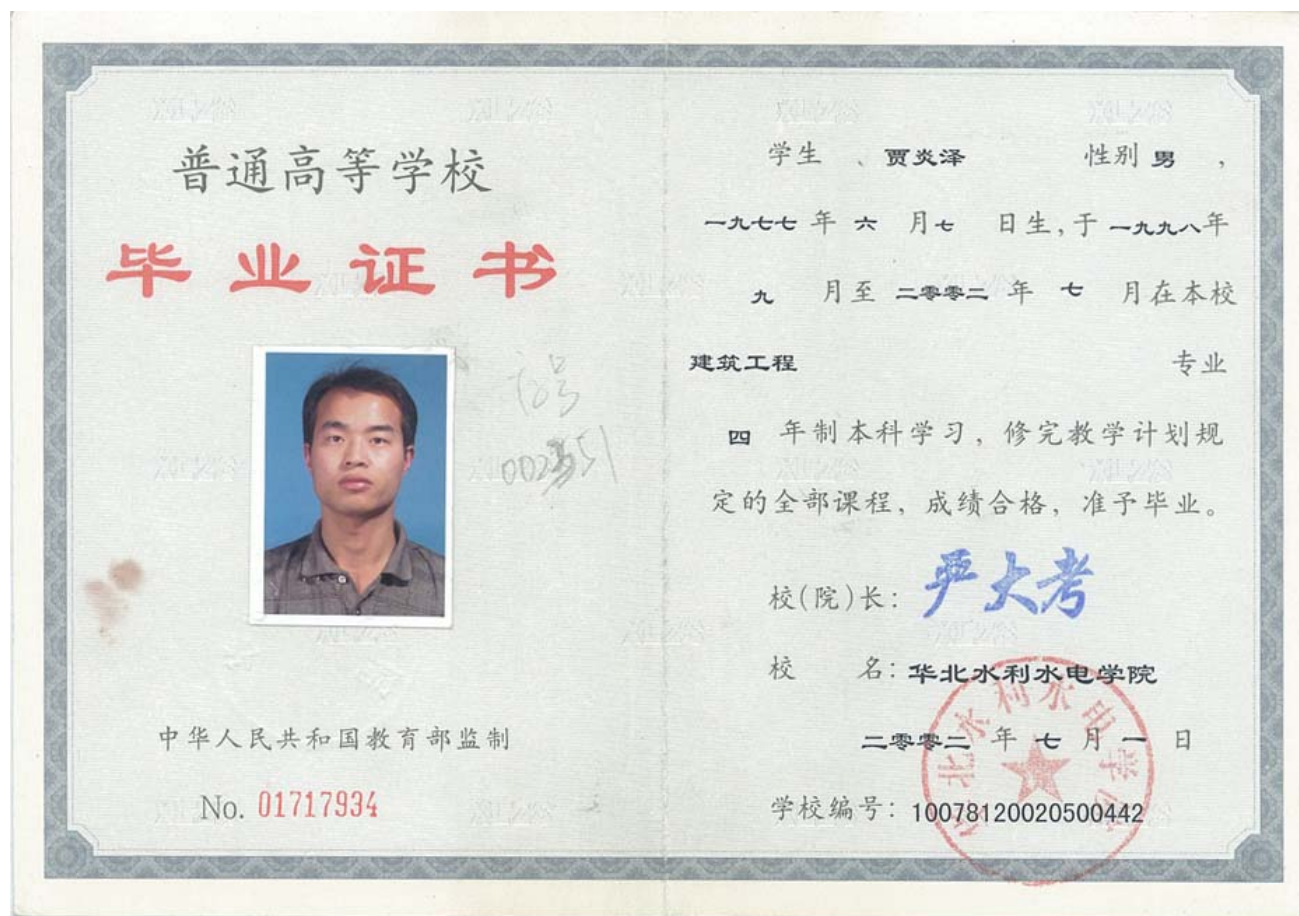 普通高等学校
毕业证书
002351
中华人民共和国教育部监制
No. 01717934
学生、贾炎泽 性别 男，
一九七七 年 六 月 七 日生,于 一九九八年
九 月至 二零零二 年 七 月在本校
建筑工程 专业
四 年制本科学习，修完教学计划规
定的全部课程，成绩合格，准予毕业。
校(院)长：严大考
校 名：华北水利水电学院
二零零二 年 七 月 一 日
学校编号：10078120020500442
华北水利水电学院